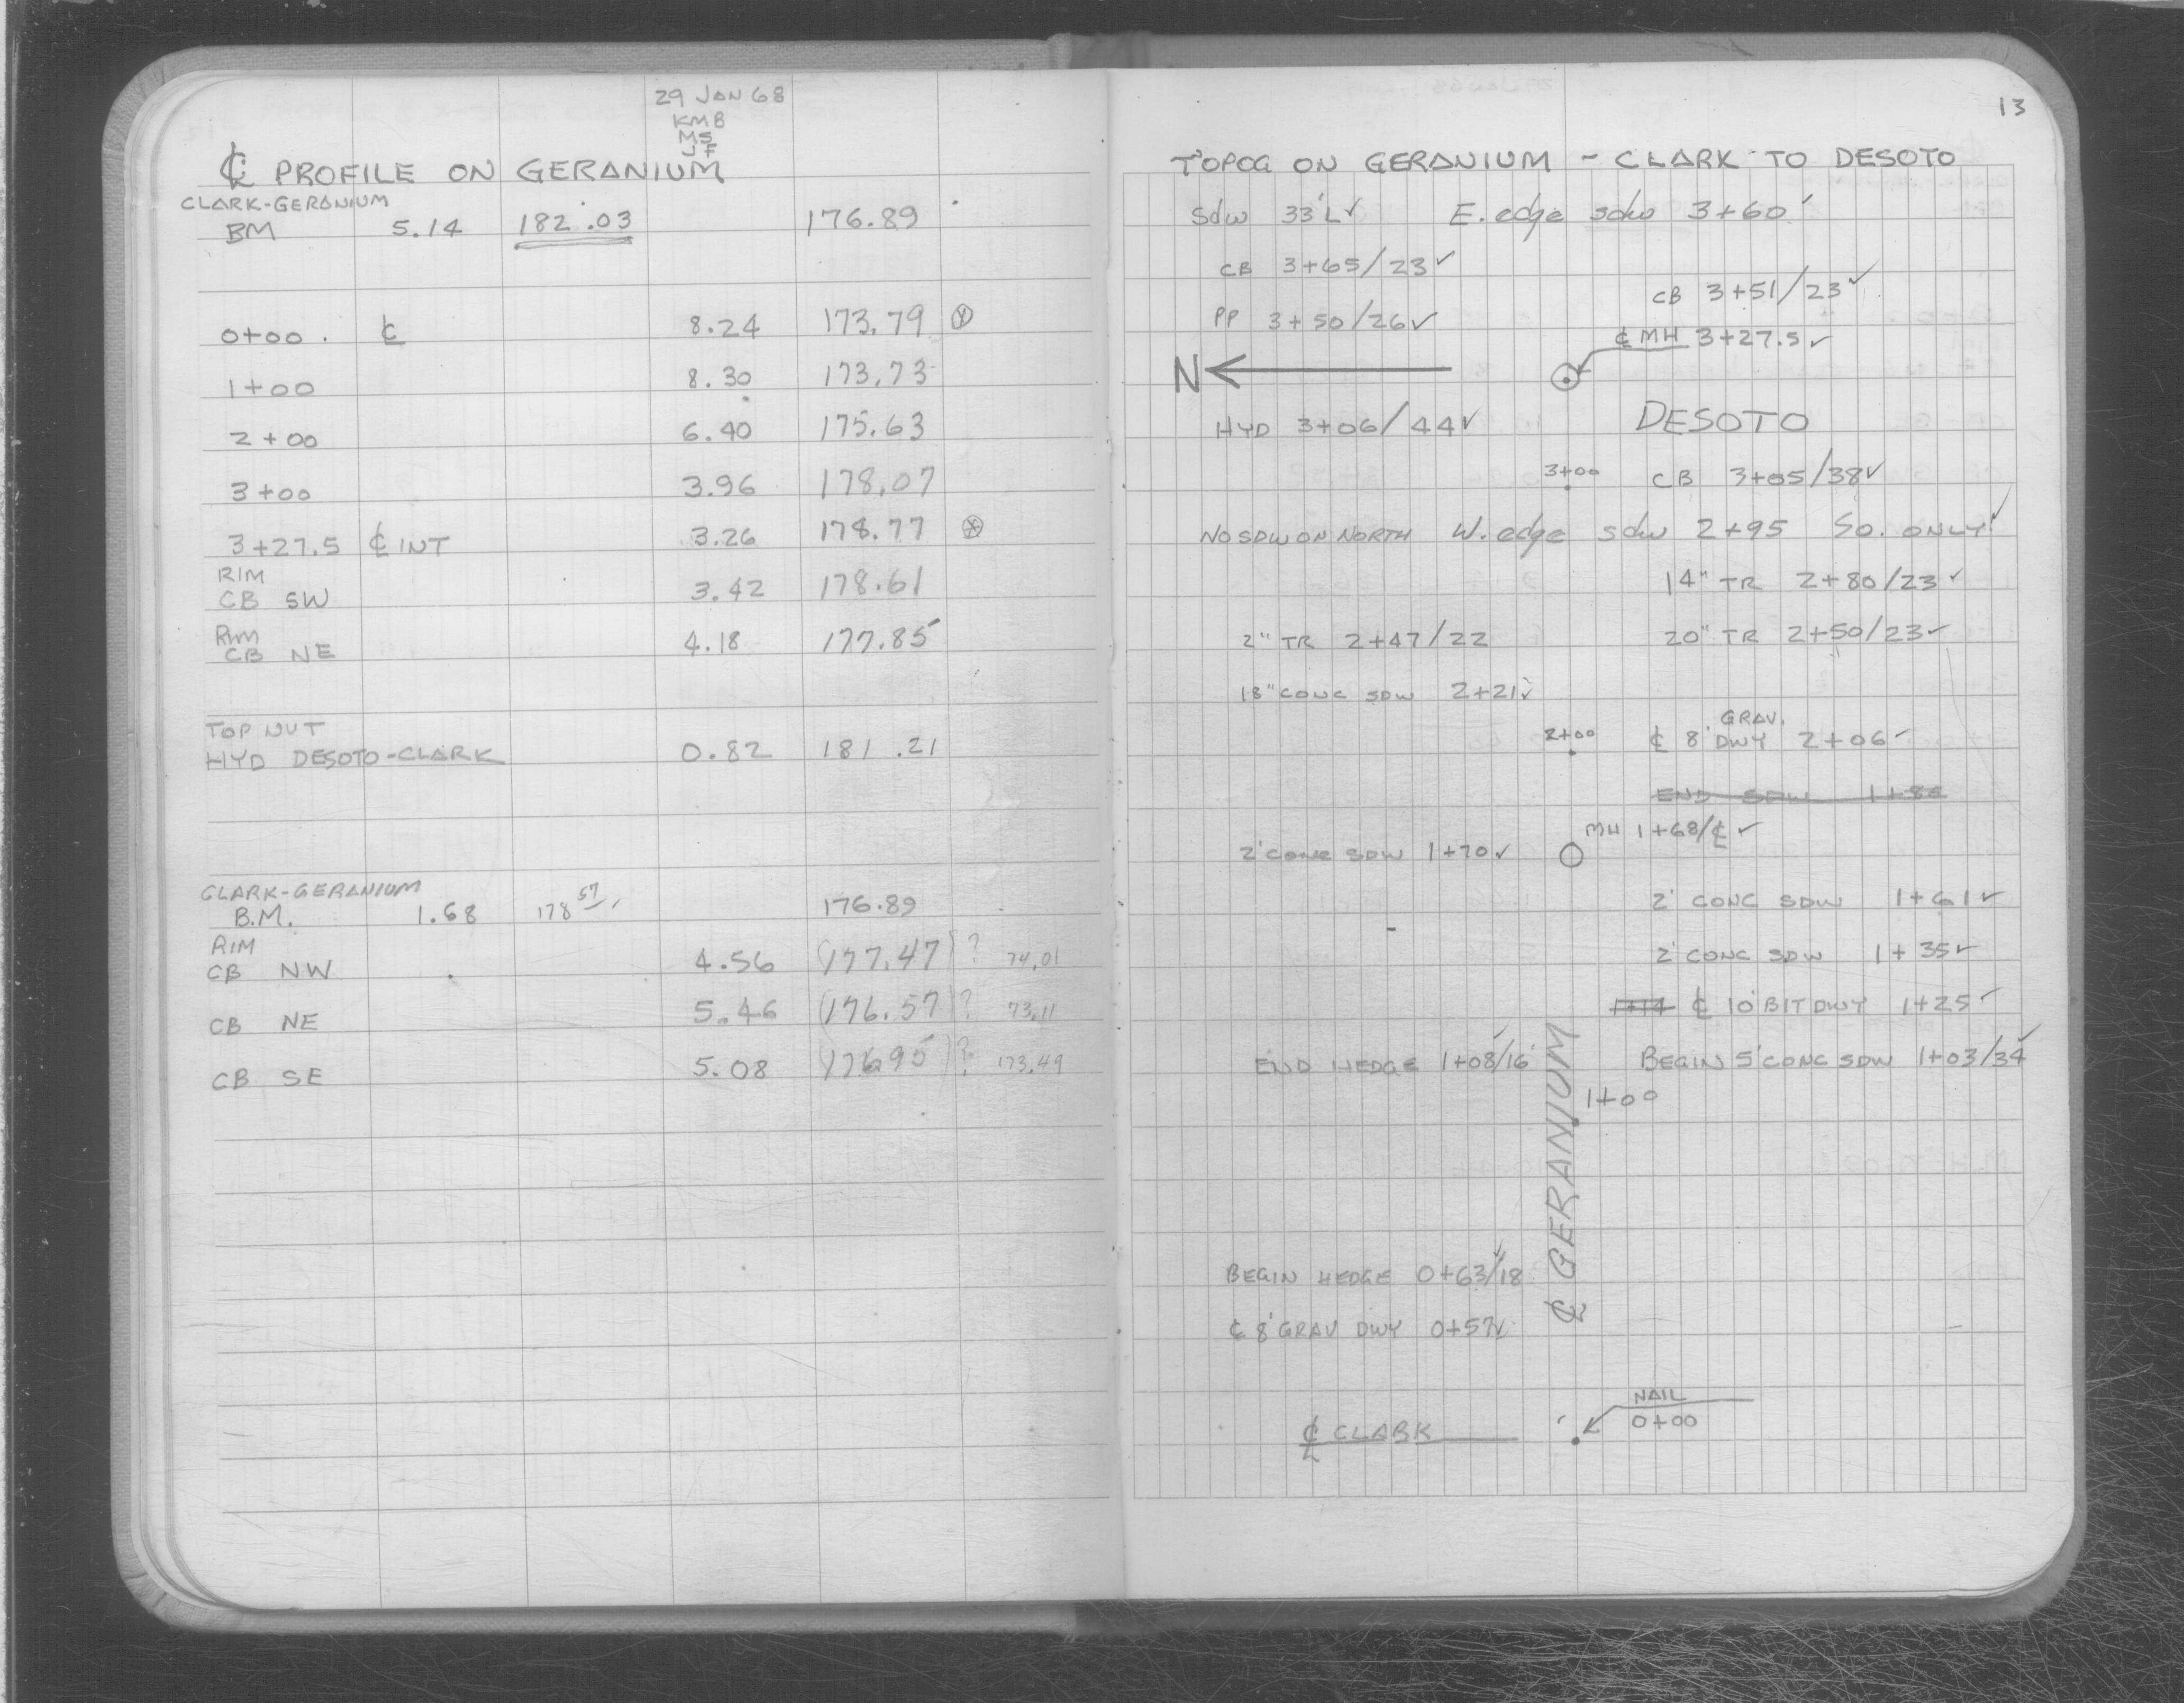 29 JAN 68
KMB
MS
JF
℄ PROFILE ON GERANIUM
CLARK-GERANIUM
BM 5.14 182.03 176.89
0+00. ℄ 8.24 173.79
1+00 8.30 173.73
2+00 6.40 175.63
3+00 3.96 178.07
3+27.5 ℄ INT 3.26 178.77 ⊗
RIM
CB SW 3.42 178.61
RIM
CB NE 4.18 177.85
TOP NUT
HYD DESOTO-CLARK 0.82 181.21
CLARK-GERANIUM
B.M. 1.68 178 57 176.89
RIM
CB NW 4.56 (177.47)? 74.01
CB NE 5.46 (176.57)? 73.11
CB SE 5.08 (176.95)? 173.49
13
TOPOG ON GERANIUM - CLARK TO DESOTO
Sdw 33'L✓ E. edge sdw 3+60✓
CB 3+65/23✓
CB 3+51/23✓
PP 3+50/26✓
℄ MH 3+27.5✓
N
DESOTO
HYD 3+06/44✓
3+00 CB 3+05/38✓
NO SDW ON NORTH W. edge sdw 2+95 SO. ONLY✓
14" TR 2+80/23✓
2" TR 2+47/22 20" TR 2+50/23✓
18" CONC SDW 2+21✓
GRAV.
2+00 ℄ 8' DWY 2+06✓
END SDW 1+88
MH 1+68/℄ ✓
2' CONC SDW 1+70✓
2' CONC SDW 1+61✓
2' CONC SDW 1+35✓
1+14 ℄ 10' BIT DWY 1+25✓
END HEDGE 1+08/16✓ BEGIN 5' CONC SDW 1+03/34✓
1+00
℄ GERANIUM
BEGIN HEDGE 0+63/18✓
℄ 8' GRAV DWY 0+57✓
NAIL
0+00
℄ CLARK